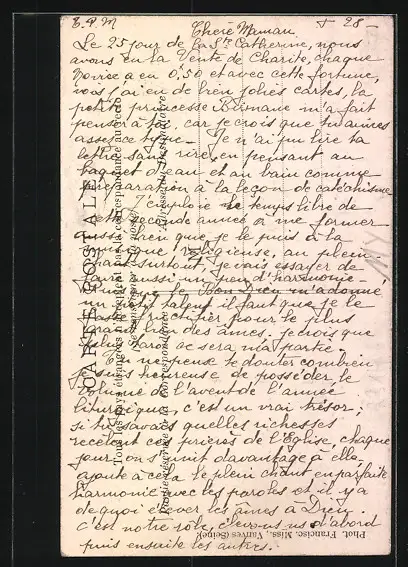 E.P.M
T 28 -
Chère Maman
Le 25 jour de la Ste Catherine, nous
avons eu la Vente de Charité, chaque
Novice a eu 0,50 et avec cette fortune,
vois j'ai eu de bien jolies cartes, la
petite princesse Birmane m'a fait
penser à toi, car je crois que tu aimes
assez ce type - Je n'ai pu lire ta
lettre sans rire, en pensant au
baquet d'eau et au bain comme
préparation à la leçon de catéchisme
J'emploie le temps libre de
cette seconde année à me former
aussi bien que je le puis à la
musique religieuse, au plain
chant surtout, je vais essayer de
faire aussi un peu d'harmonie
le Bon Dieu m'a donné
un petit talent il faut que je le
fasse fructifier pour le plus
grand bien des âmes, je crois que
plus tard ce sera ma partie -
Tu ne peux te douter combien
je suis heureuse de posséder le
volume de l'avent de l'année
liturgique, c'est un vrai trésor;
si tu savais quelles richesses
recèlent ces prières de l'Eglise, chaque
jour on s'unit davantage à elle,
ajoute à cela le plein chant en parfaite
harmonie avec les paroles et il y a
de quoi élever les âmes à Dieu.
c'est notre rôle, élevons-nous d'abord
puis ensuite les autres.
CARTE POSTALE
Tous les pays étrangers n'acceptent pas la correspondance au recto
(Se renseigner à la poste)
Partie réservée de la Correspondance
Adresse du Destinataire
Phot. Francisc. Miss. Vanves (Seine)